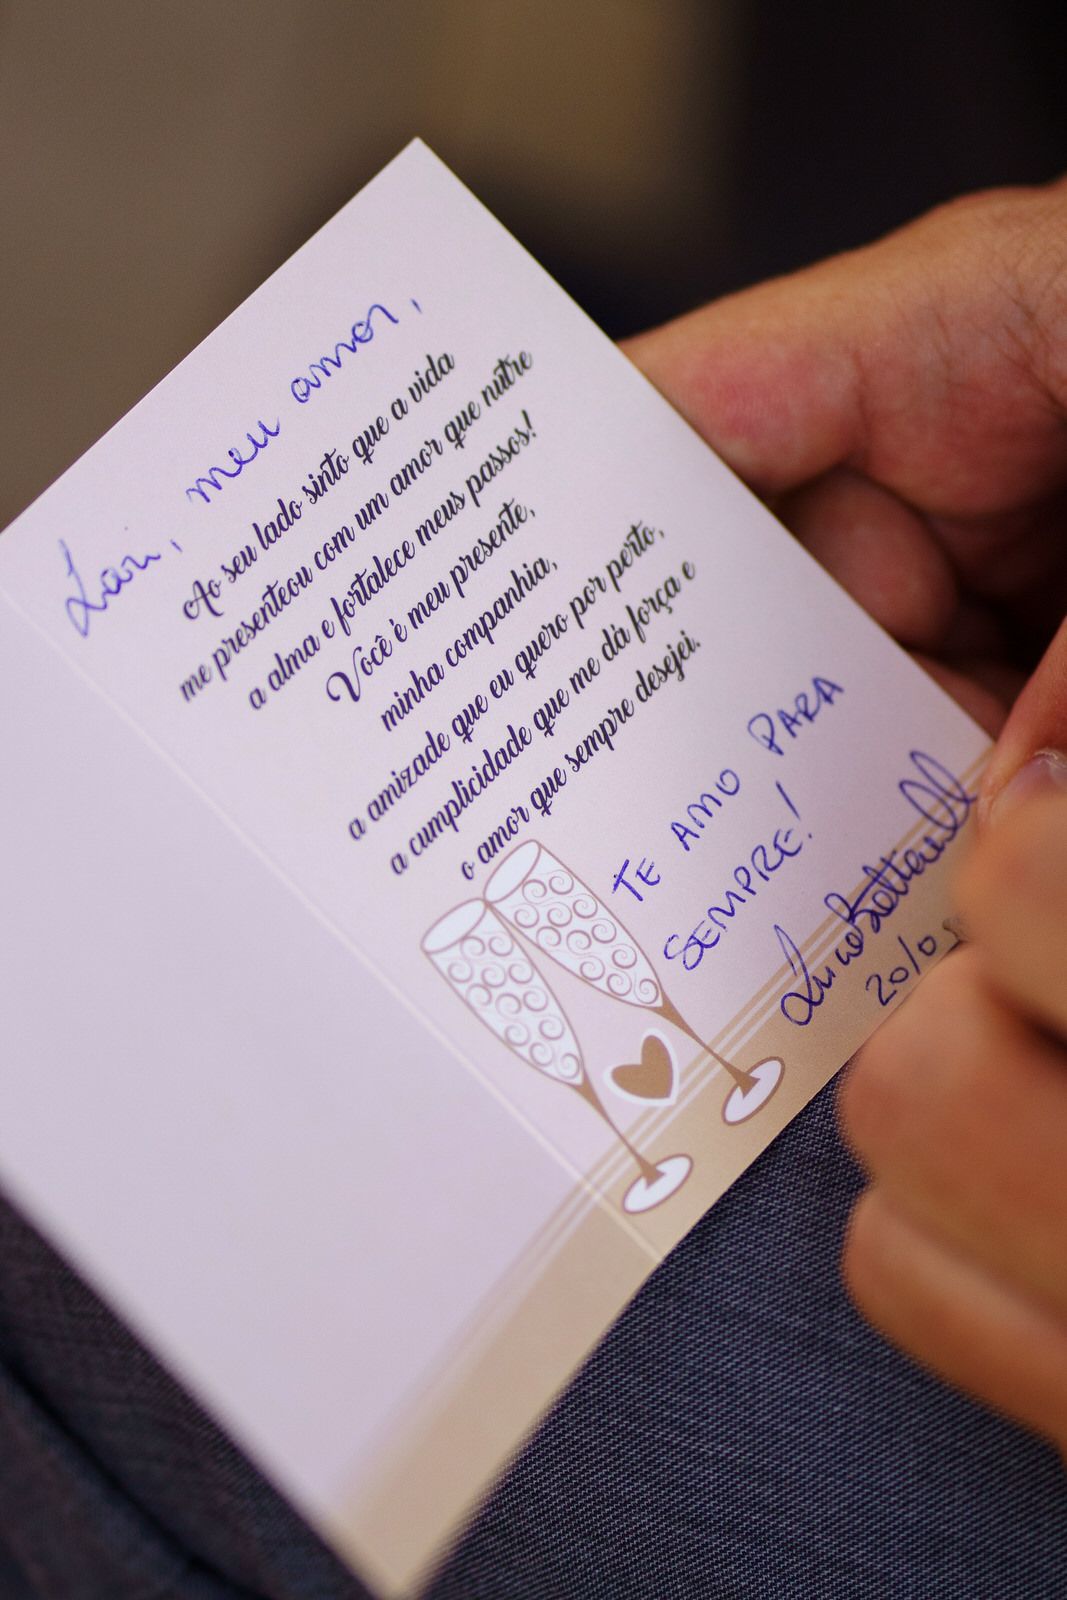 Lari, meu amor,
Ao seu lado sinto que a vida
me presenteou com um amor que nutre
a alma e fortalece meus passos!
Você é meu presente,
minha companhia,
a amizade que eu quero por perto,
a cumplicidade que me dá força e
o amor que sempre desejei.
TE AMO PARA
SEMPRE!
20/0